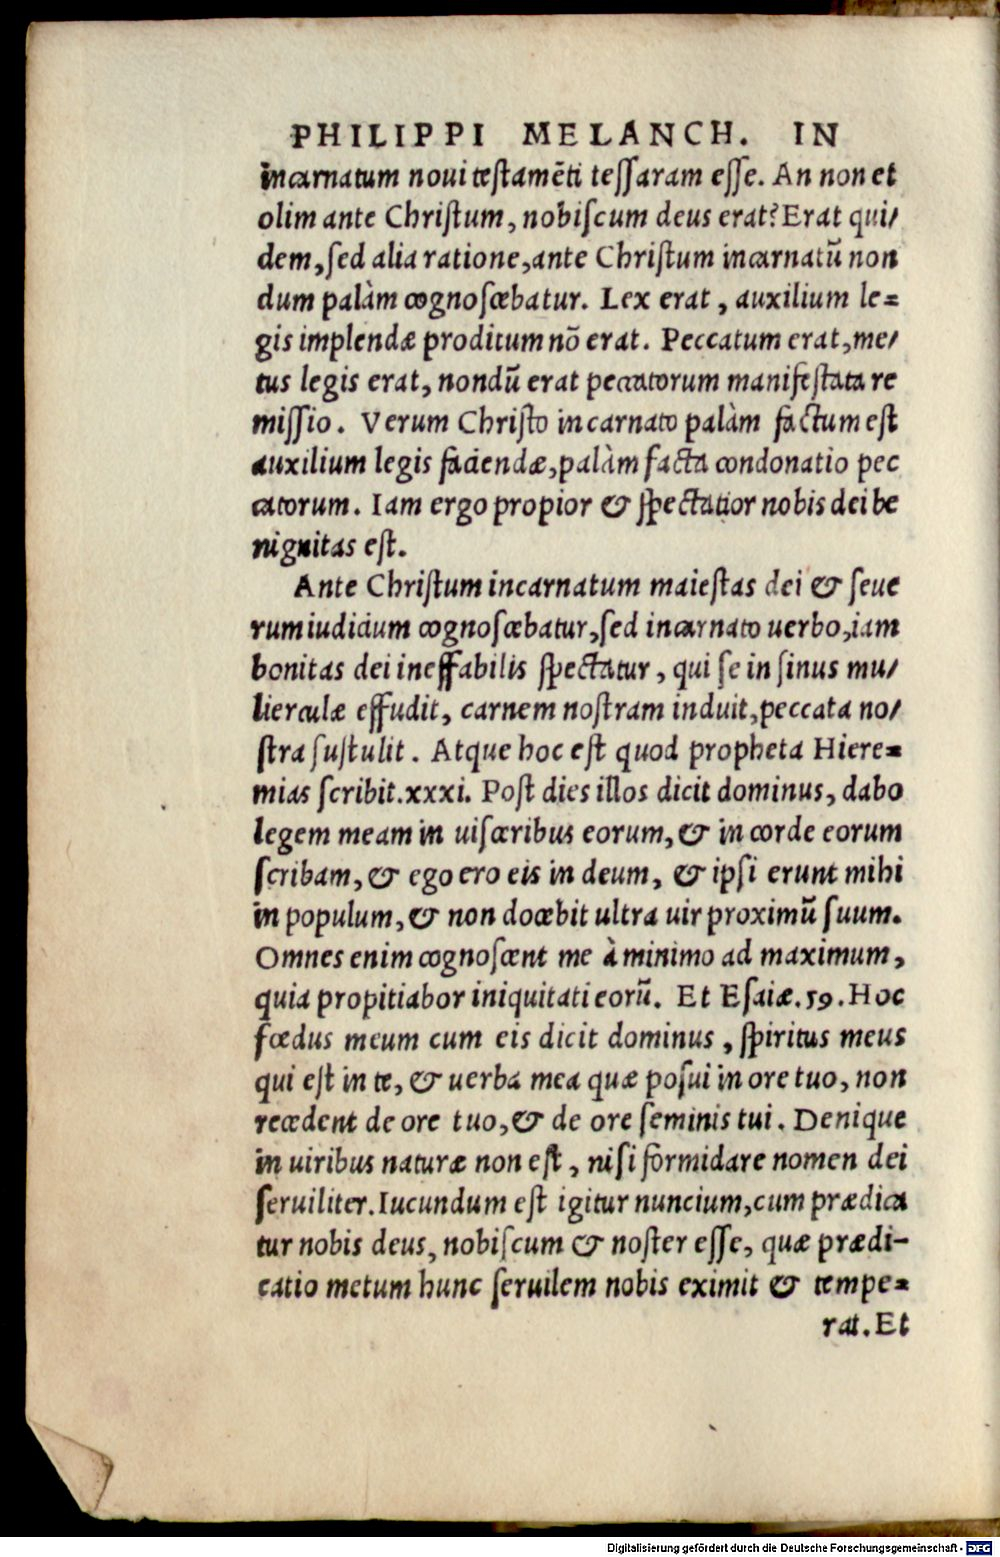 PHILIPPI MELANCH. IN
incarnatum noui testamẽti tessaram esse. An non et
olim ante Christum, nobiscum deus erat? Erat qui/
dem, sed alia ratione, ante Christum incarnatũ non
dum palàm cognoscebatur. Lex erat, auxilium le=
gis implendæ proditum nõ erat. Peccatum erat, me/
tus legis erat, nondũ erat peccatorum manifestata re
missio. Verum Christo incarnato palàm factum est
auxilium legis faciendæ, palàm facta condonatio pec
catorum. Iam ergo propior & spectatior nobis dei be
nignitas est.
Ante Christum incarnatum maiestas dei & seue
rum iudicium cognoscebatur, sed incarnato uerbo, iam
bonitas dei ineffabilis spectatur, qui se in sinus mu/
lierculæ effudit, carnem nostram induit, peccata no/
stra sustulit. Atque hoc est quod propheta Hiere=
mias scribit. xxxi. Post dies illos dicit dominus, dabo
legem meam in uisceribus eorum, & in corde eorum
scribam, & ego ero eis in deum, & ipsi erunt mihi
in populum, & non docebit ultra uir proximũ suum.
Omnes enim cognoscent me à minimo ad maximum,
quia propitiabor iniquitati eorũ. Et Esaiæ. 59. Hoc
fœdus meum cum eis dicit dominus, spiritus meus
qui est in te, & uerba mea quæ posui in ore tuo, non
recedent de ore tuo, & de ore seminis tui. Denique
in uiribus naturæ non est, nisi formidare nomen dei
seruiliter. Iucundum est igitur nuncium, cum prædica
tur nobis deus, nobiscum & noster esse, quæ prædi-
catio metum hunc seruilem nobis eximit & tempe=
rat. Et
Digitalisierung gefördert durch die Deutsche Forschungsgemeinschaft - DFG